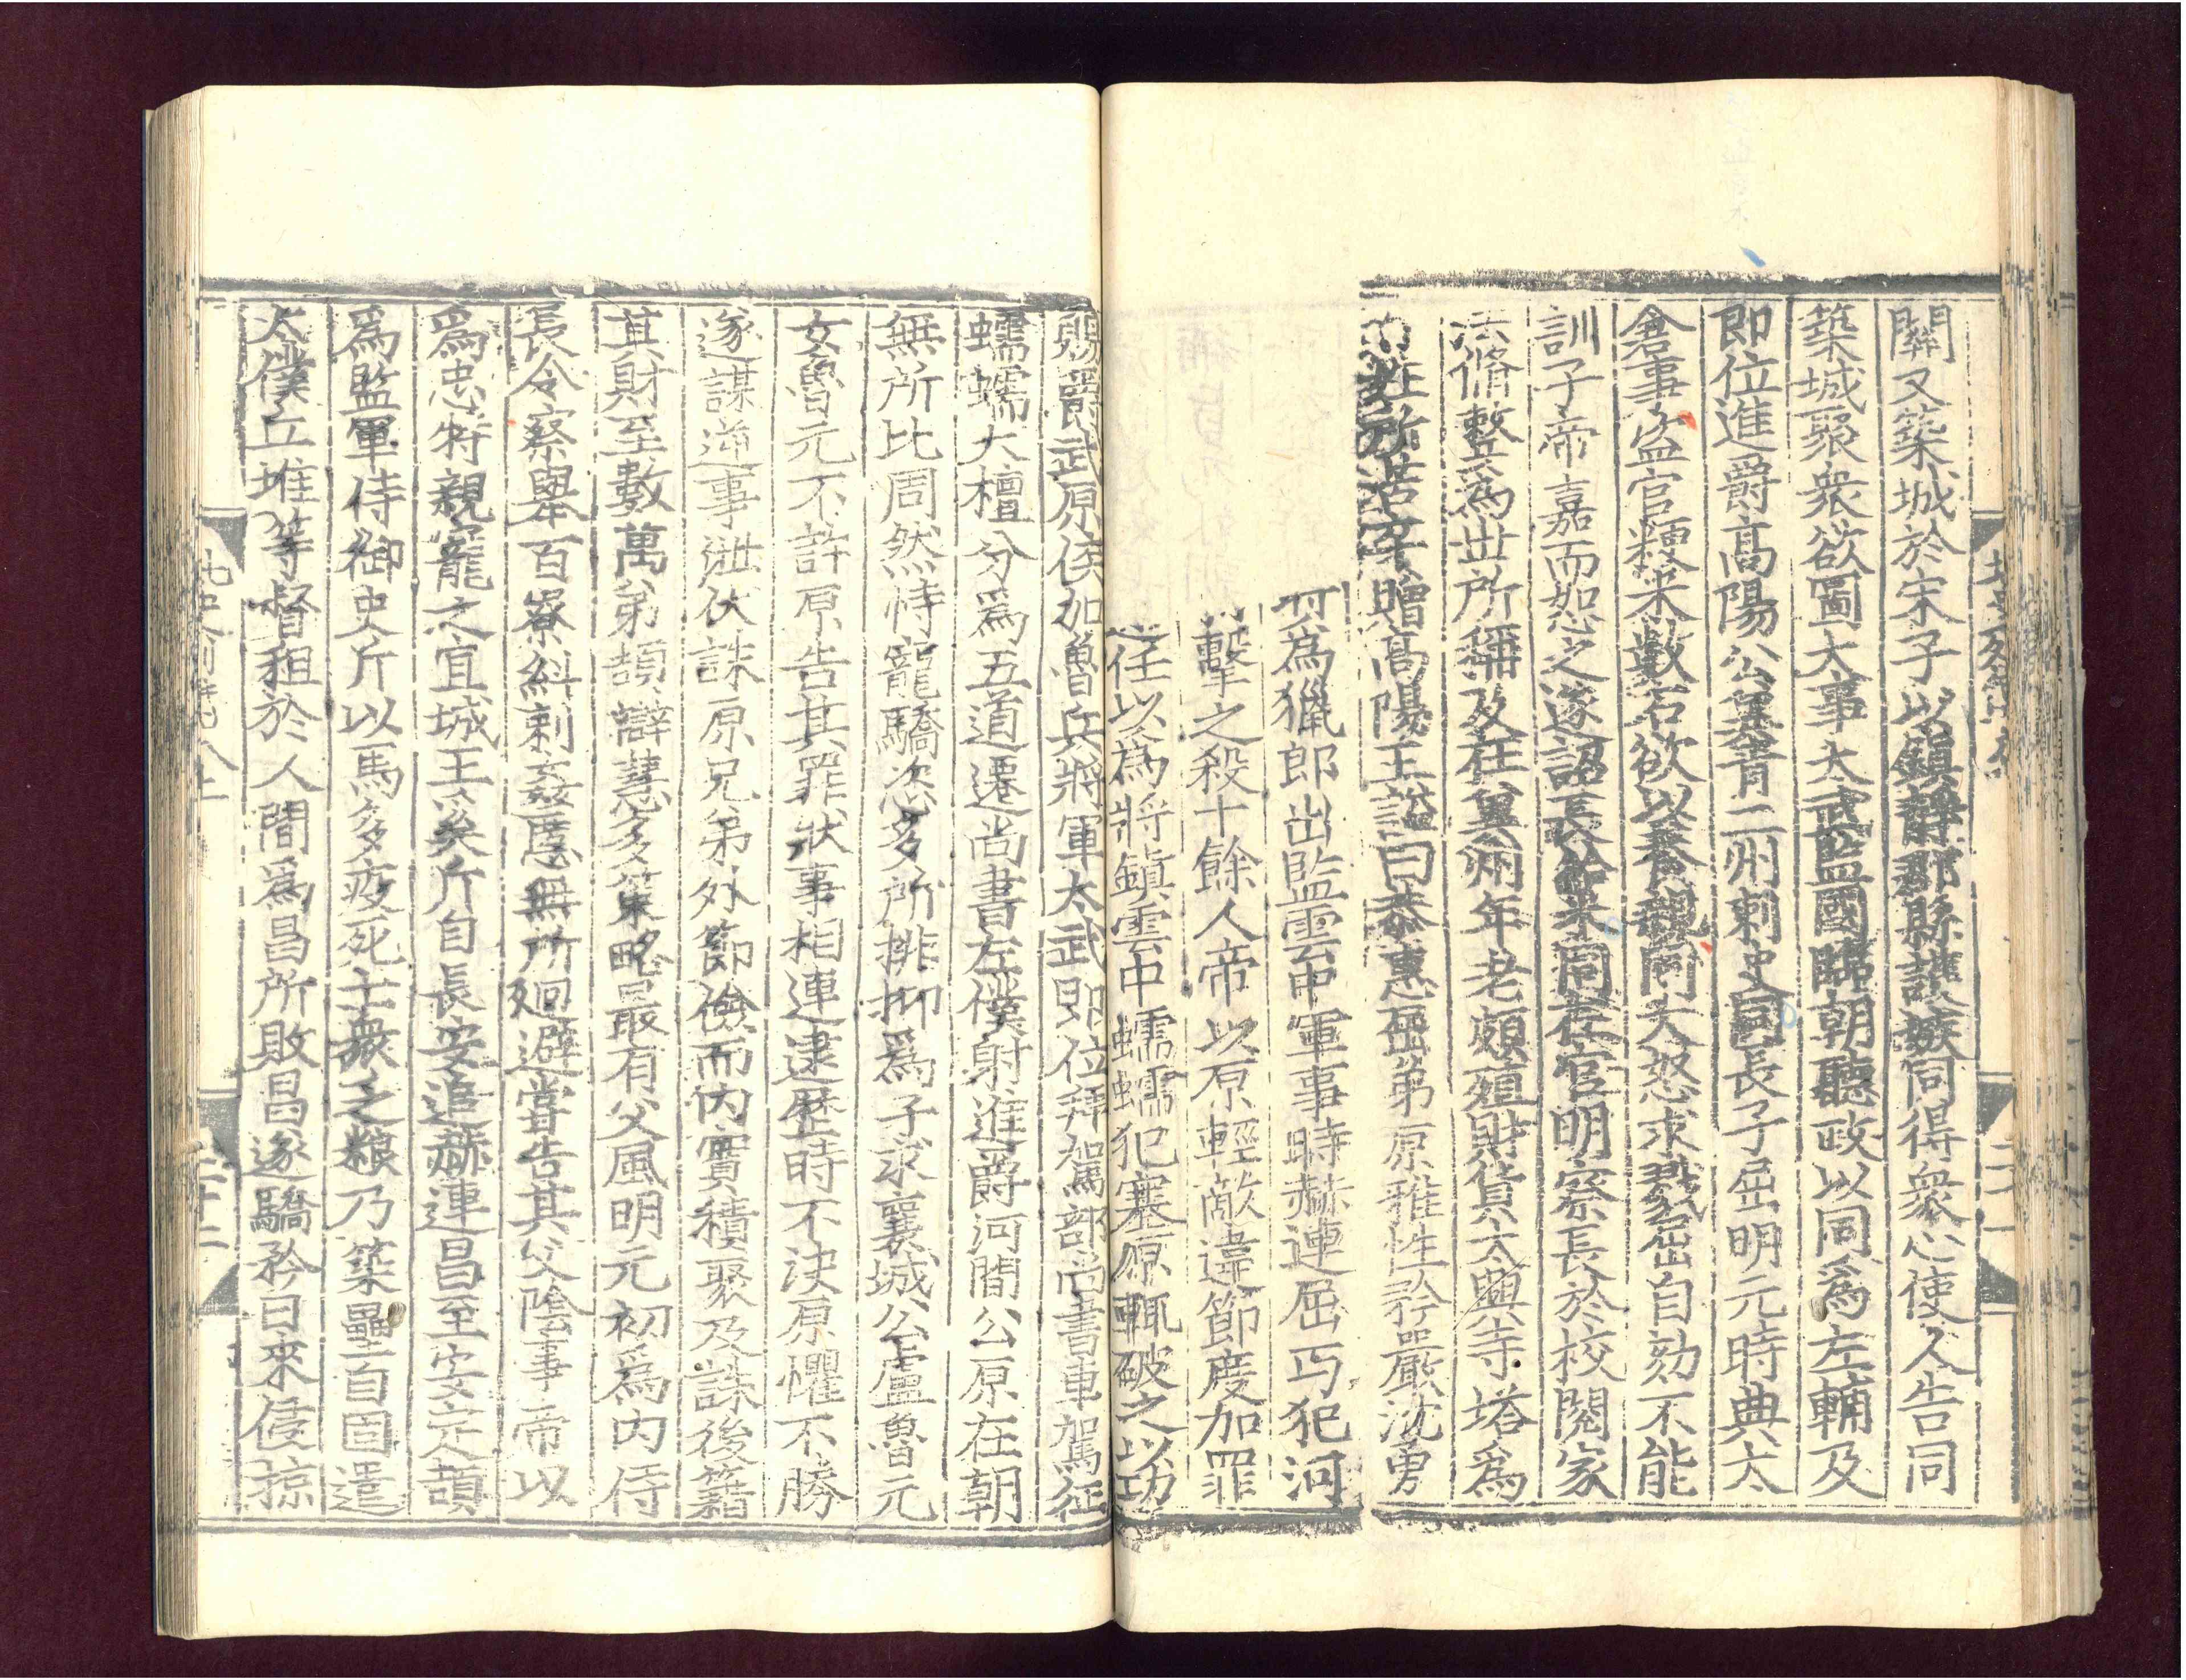 關又築城於宋子以鎮靜郡縣護嫉同得衆心使人告同
築城聚衆欲圖大事太武監國臨朝聽政以同爲左輔及
即位進爵高陽公兾青二州刺史同長子屈明元時典太
倉事盗官粳米數石欲以養親同大怒求戮屈自劾不能
訓子帝嘉而恕之遂詔長給米同在官明察長於校閱家
法脩整爲世所稱及在兾州年老頗殖財貨大興寺塔爲
百姓所苦卒贈高陽王諡曰恭惠屈弟原雅性矜嚴沈勇
爲獵郎出監雲中軍事時赫連屈丐犯河
擊之殺十餘人帝以原輕敵違節度加罪
任以爲將鎮雲中蠕蠕犯塞原輒破之以功
賜爵武原侯加魯兵將軍太武即位拜駕部尚書車駕征
蠕蠕大檀分爲五道遷尚書左僕射進爵河間公原在朝
無所比周然恃寵驕恣多所排抑爲子求襄城公盧魯元
女魯元不許原告其罪狀事相連逮歷時不決原懼不勝
遂謀逆事泄伏誅原兄弟外節儉而内實積聚及誅後籍
其財至數萬弟頡辯慧多策略最有父風明元初爲内侍
長令察舉百寮糾刺姦慝無所廻避嘗告其父陰事帝以
爲忠特親寵之宜城王奚斤自長安追赫連昌至安定頡
爲監軍侍御史斤以馬多疫死士衆乏粮乃築壘自固遣
太僕丘堆等督租於人間爲昌所敗昌遂驕矜日來侵掠
北史列傳
二十一
二十二